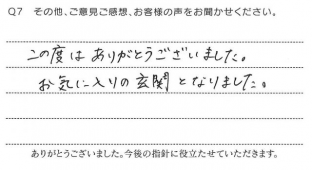 Q7 その他、ご意見ご感想、お客様の声をお聞かせください。
この度はありがとうございました。
お気に入りの玄関となりました。
ありがとうございました。今後の指針に役立たせていただきます。